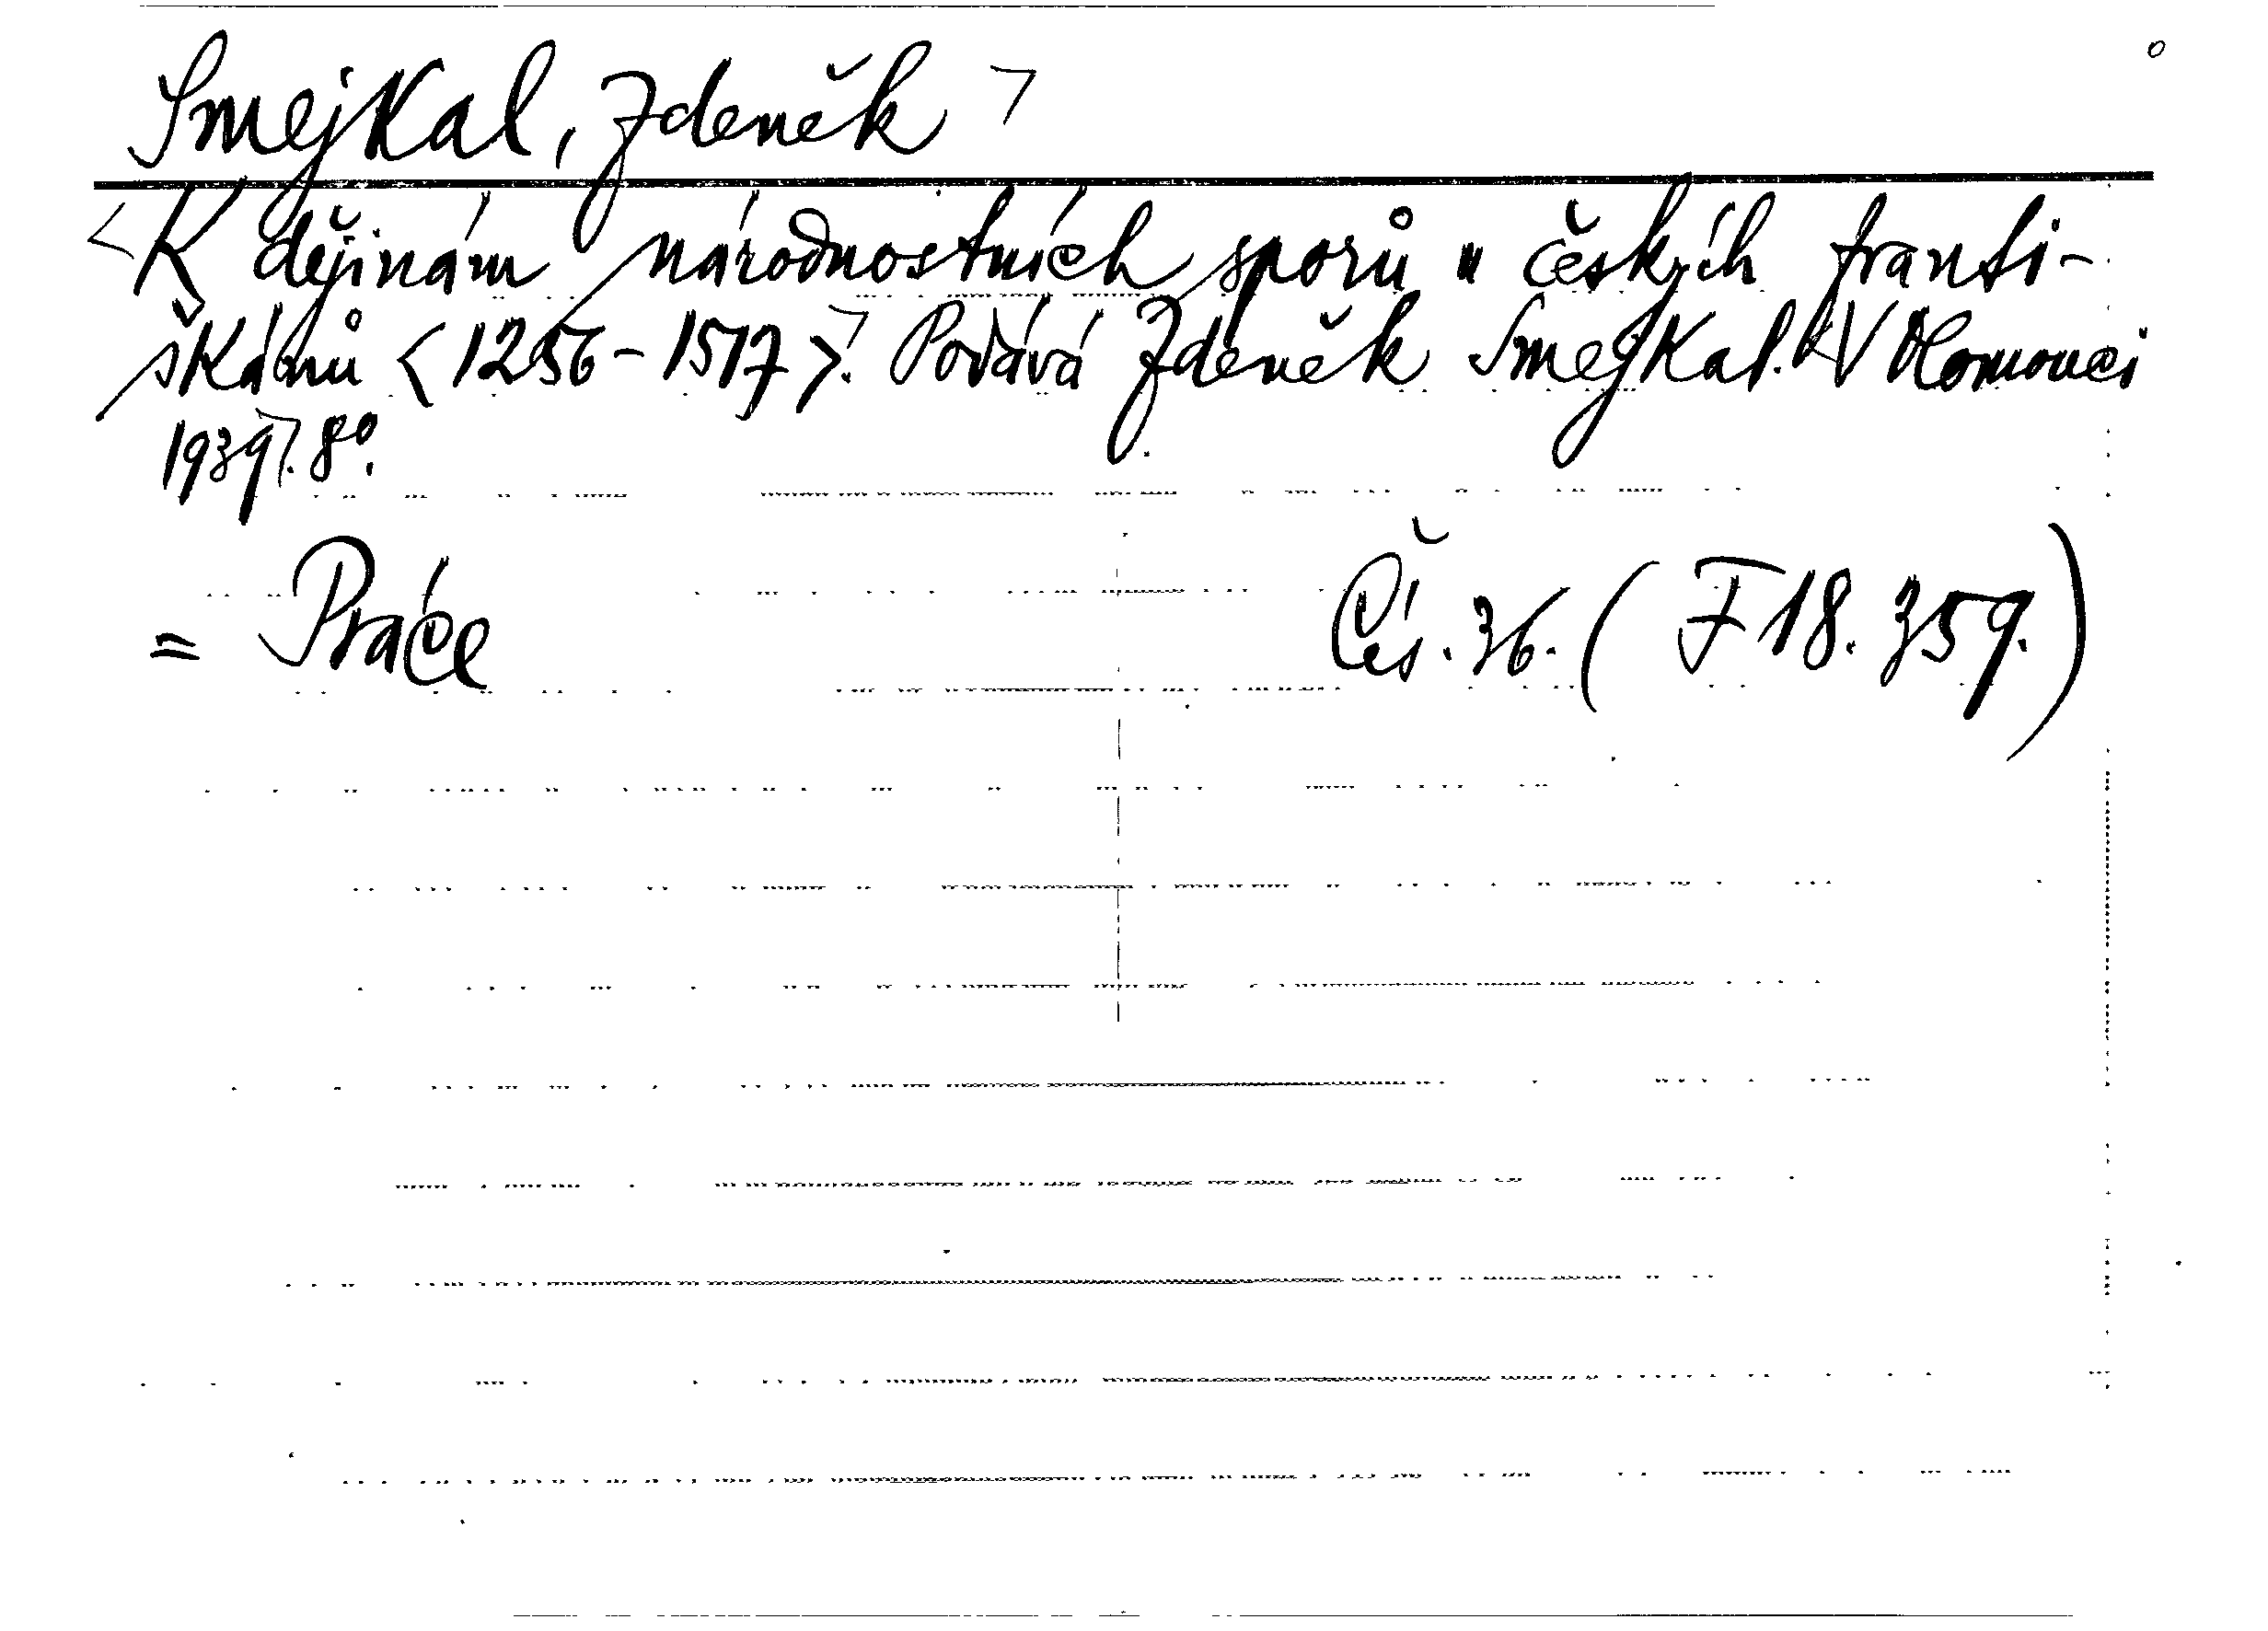 Smejkal, Zdeněk
K dějinám národnostních sporů u českých franti-
škánů <1256-1517>. Podává Zdeněk Smejkal. V Olomouci
1939. 8°.
= Práce Čís. 36. (F 18.359.)